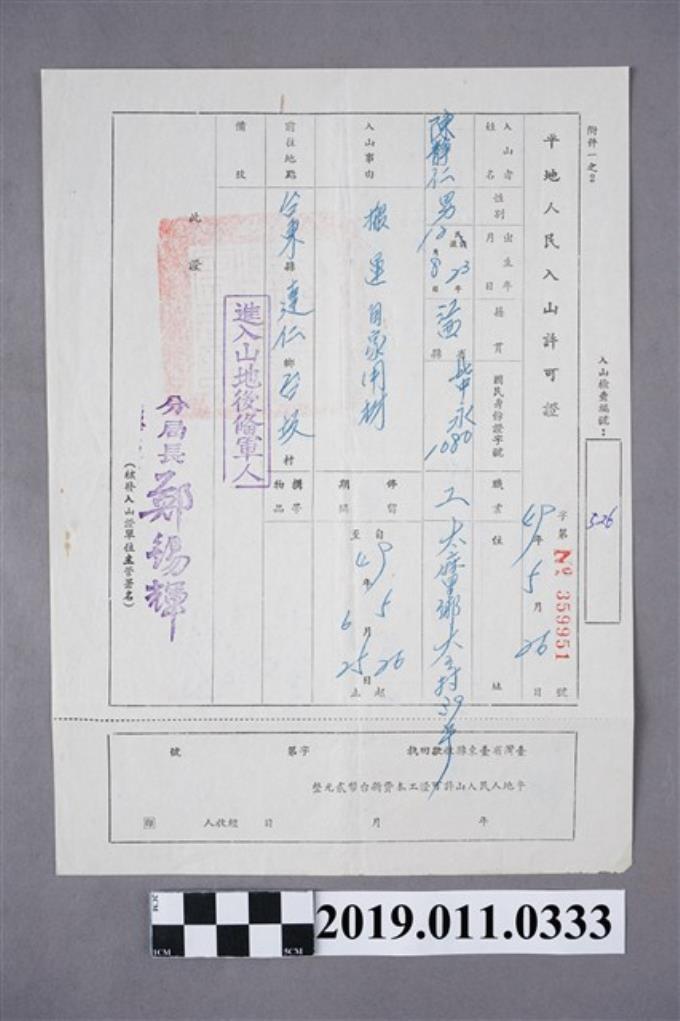 附件一之2
入山檢查編號：
526
平地人民入山許可證
字第 № 359951 號
49年5月26日
入山者姓名
性別
出生年月日
籍貫
國民身份證字號
職業
住址
陳靜仁
男
民國 23年
12月8日
省 縣
1080
工
太麻里鄉
入山事由
搬運自家用樹
停留期間
自49年5月26日起
至 年6月25日止
前往地點
台東縣達仁鄉 村
攜帶物品
備攷
此證
進入山地後備軍人
分局長 鄭錫輝
(核發入山證單位主管署名)
臺灣省臺東縣 款回執 字第 號
平地人民入山許可證工本費新台幣貳元整
年 月 日 經收人 印
2CM
1CM
5CM
2019.011.0333